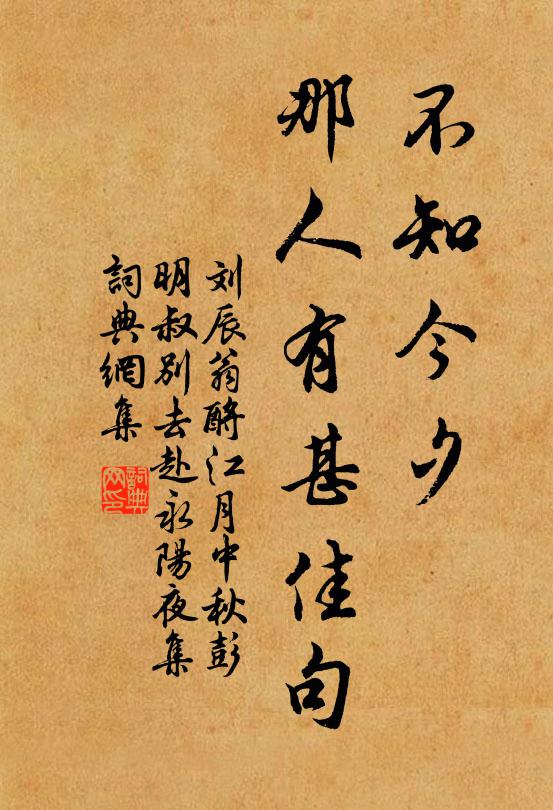 不知今夕
那人有甚佳句
刘辰翁酹江月中秋彭
明叔别去赴永陽夜集
詞典網集
詞典
网印